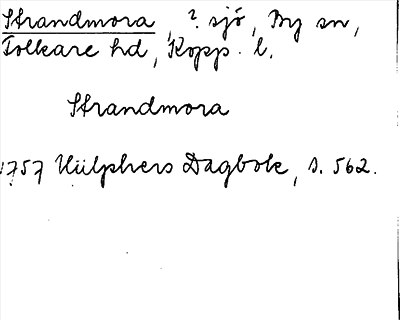 Strandmora, ? sjö, By sn,
Folkare hd, Kopp. l.
Strandmora
1757 Hülphers Dagbok, s. 562.